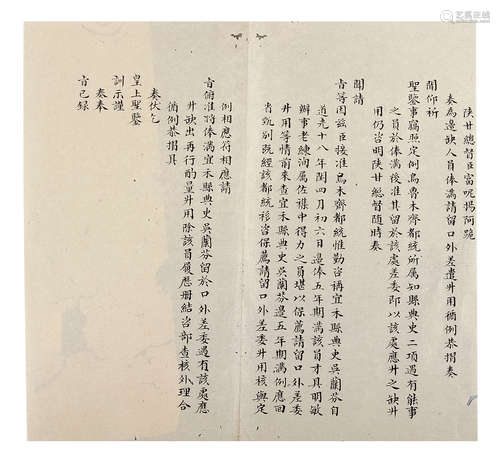 陝甘總督臣富呢揚阿跪
奏為邊缺人員俸滿請留口外差遣升用循例恭摺奏
聞仰祈
聖鑒事竊照定例烏魯木齊都統所属知縣典史二項遇有能事
之員於俸滿後准其留於該處差委即以該處應升之缺升
用仍咨明陝甘總督隨時奏
聞請
㫖等因兹臣接准烏木齊都統惟勤咨稱宜禾縣典史吳蘭芬自
道光十八年閏四月初六日邊俸五年期滿該員才具明敏
辦事老練洵属佐襍中得力之員堪以保薦請留口外差委
升用等情前来查宜禾縣典史吳蘭芬邊五年期滿例應回
省甄别既經該都統移咨保薦請留口外差委升用核與定
例相應符相應請
㫖俯准將俸滿宜禾縣典史吳蘭芬留於口外差委遇有該處應
升缺出再行酌量升用除該員履歷册結咨部查核外理合
循例恭摺具
奏伏乞
皇上聖鑒
訓示謹
奏奉
㫖已録